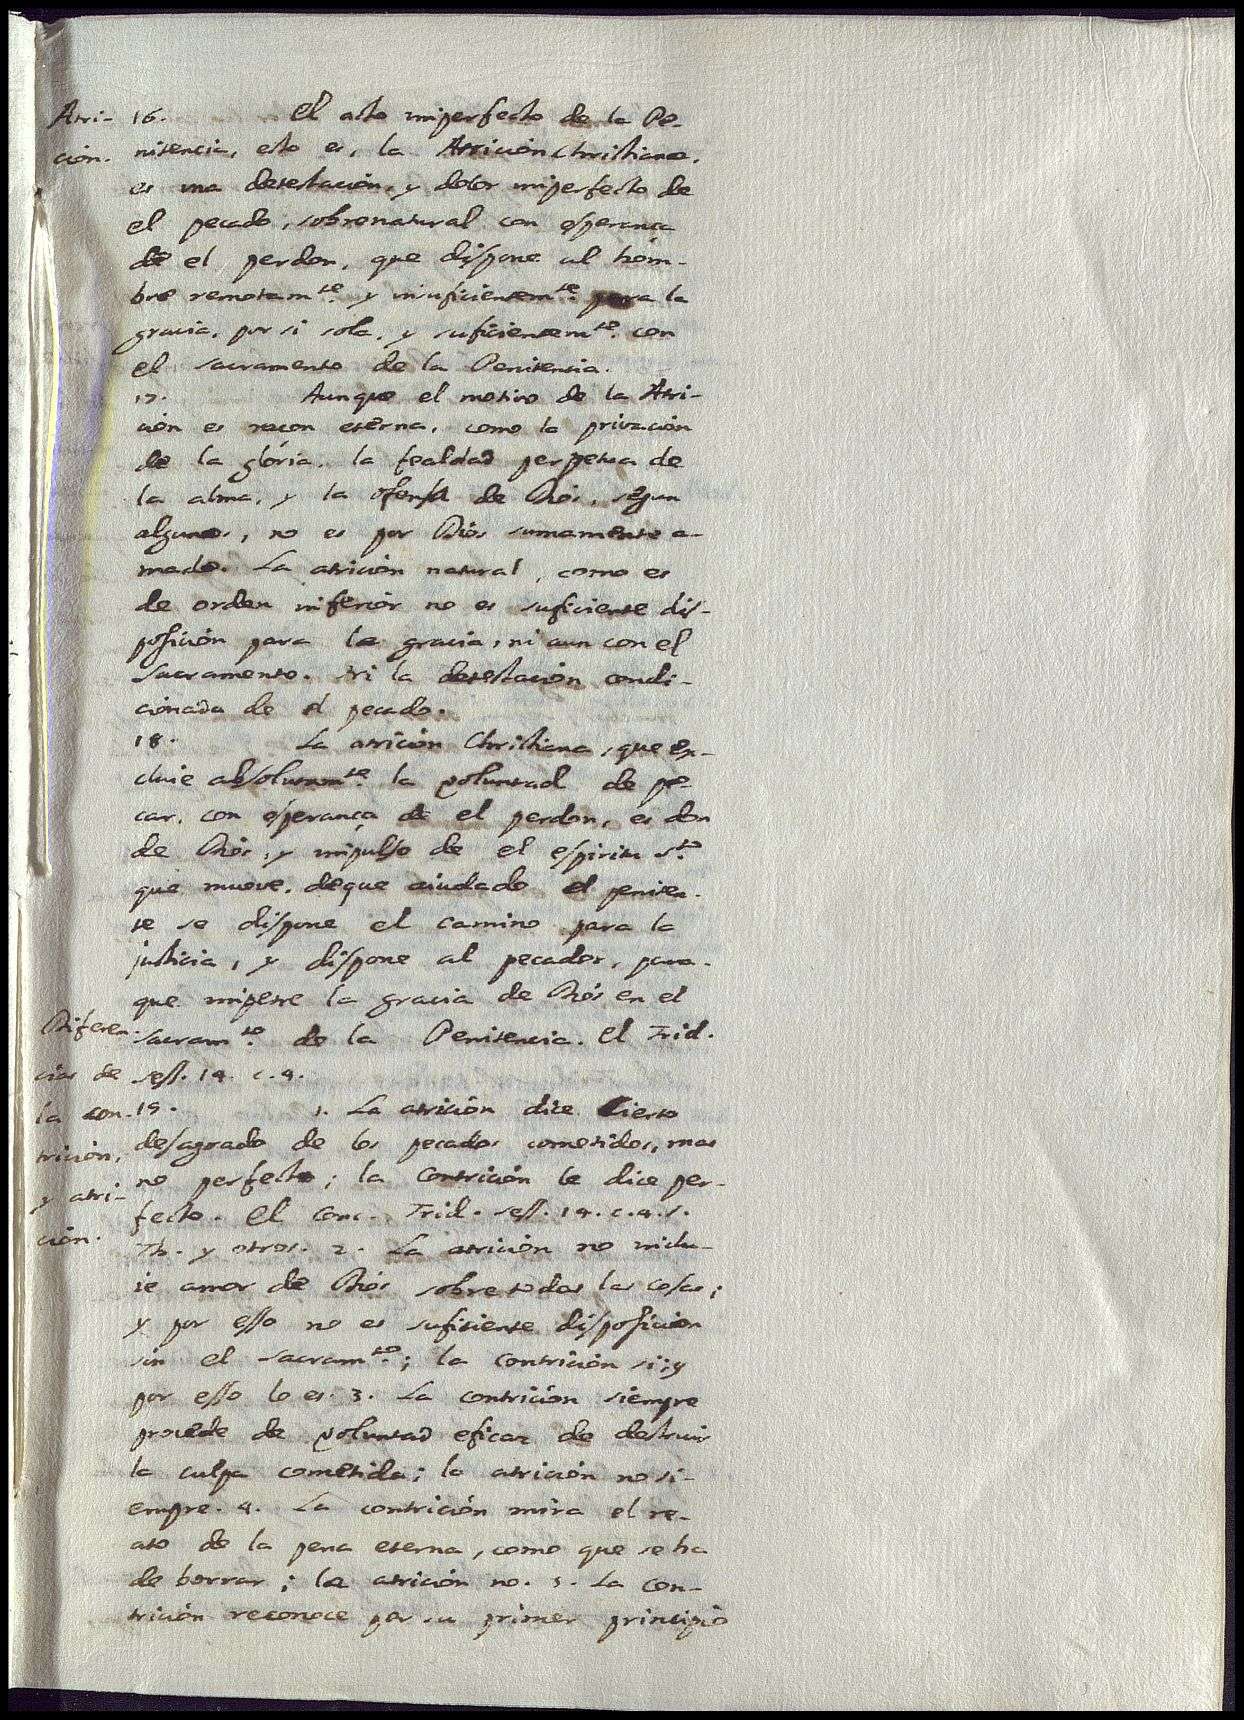 Atri-
ción.
16. El acto imperfecto de la Pe-
nitencia, esto es, la Atrición Christiana,
es una detestación, y dolor imperfecto de
el pecado, sobrenatural con esperança
de el perdon, que dispone al hóm-
bre remotam.te y insuficientem.te para la
gracia, por si sola, y suficientem.te con
el sacramento de la Penitencia.
17. Aunque el motivo de la Atri-
ción es racon eterna, como la privación
de la glória, la fealdad perpetua de
la alma, y la ofensa de Diós, segun
algunos, no es por Diós sumamente a-
mado. La atrición natural, como es
de orden inferiór no es suficiente dis-
posición para la gracia, ni aun con el
sacramento. Ni la detestación condi-
cionada de el pecado.
18. La atrición Christiana, que ex-
cluie absolutam.te la voluntad de pe-
car, con esperança de el perdon, es don
de Diós, y impulso de el espiritu S.to
que mueve, de que aiudado el peniten-
te se dispone el camino para la
justicia, y dispone al pecador, para-
que impetre la gracia de Diós en el
sacram.to de la Penitencia. El Trid.
sess. 14. c. 4.
Diferen-
cias de
la con-
trición,
y atri-
ción.
19. 1. La atrición dice cierto
desagrado de los pecados cometidos, mas
no perfecto; la contrición le dice per-
fecto. El Conc. Trid. sess. 14. c. 4. S.
Th. y otros. 2. La atrición no inclu-
ie amor de Diós sobre todas las cosas;
y por esso no es suficiente disposición
sin el sacram.to; la contrición si; y
por esso lo es. 3. La contrición siempre
procede de voluntad eficaz de destruir
la culpa cometida; la atrición no si-
empre. 4. La contrición mira el re-
ato de la pena eterna, como que se ha
de borrar; la atrición no. 5. La con-
trición reconoce por su primer principio